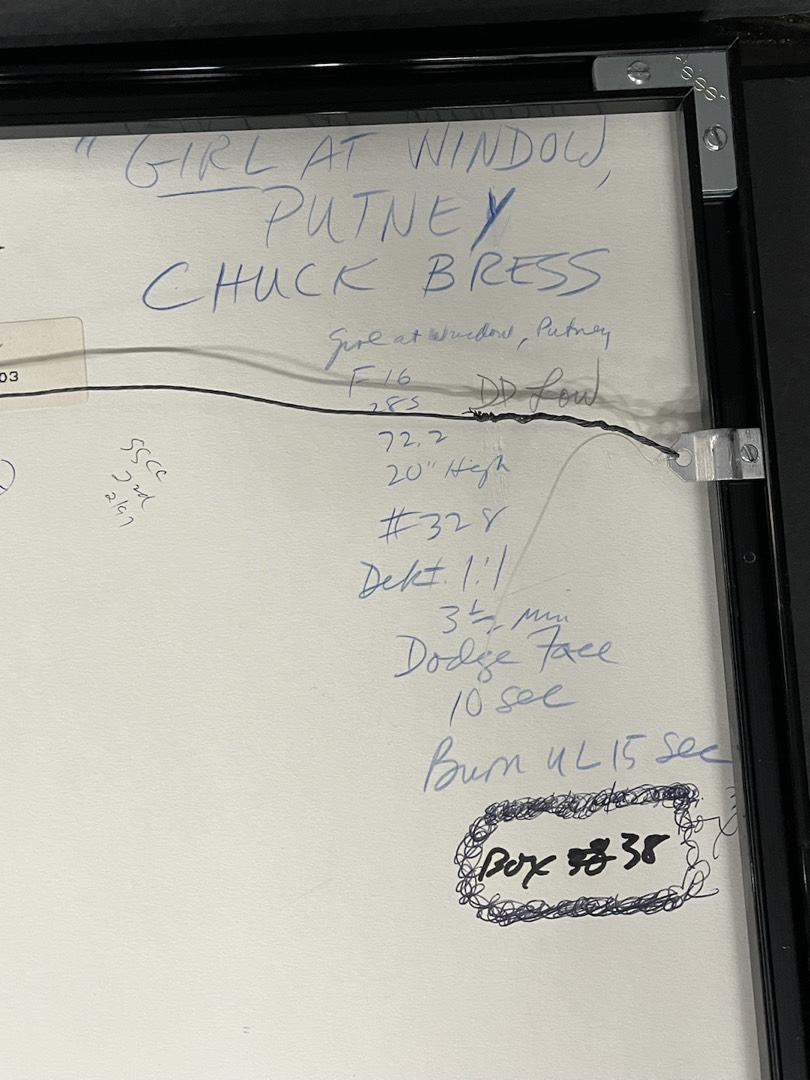 "GIRL AT WINDOW,
PUTNEY
CHUCK BRESS
Girl at Window, Putney
F 16
285
DD Low
72.2
20" High
#328
Dekt. 1:1
3 1/2 Min
Dodge Face
10 sec
Burn UL 15 sec
Box 38
03
SSCC
2nd
2/97